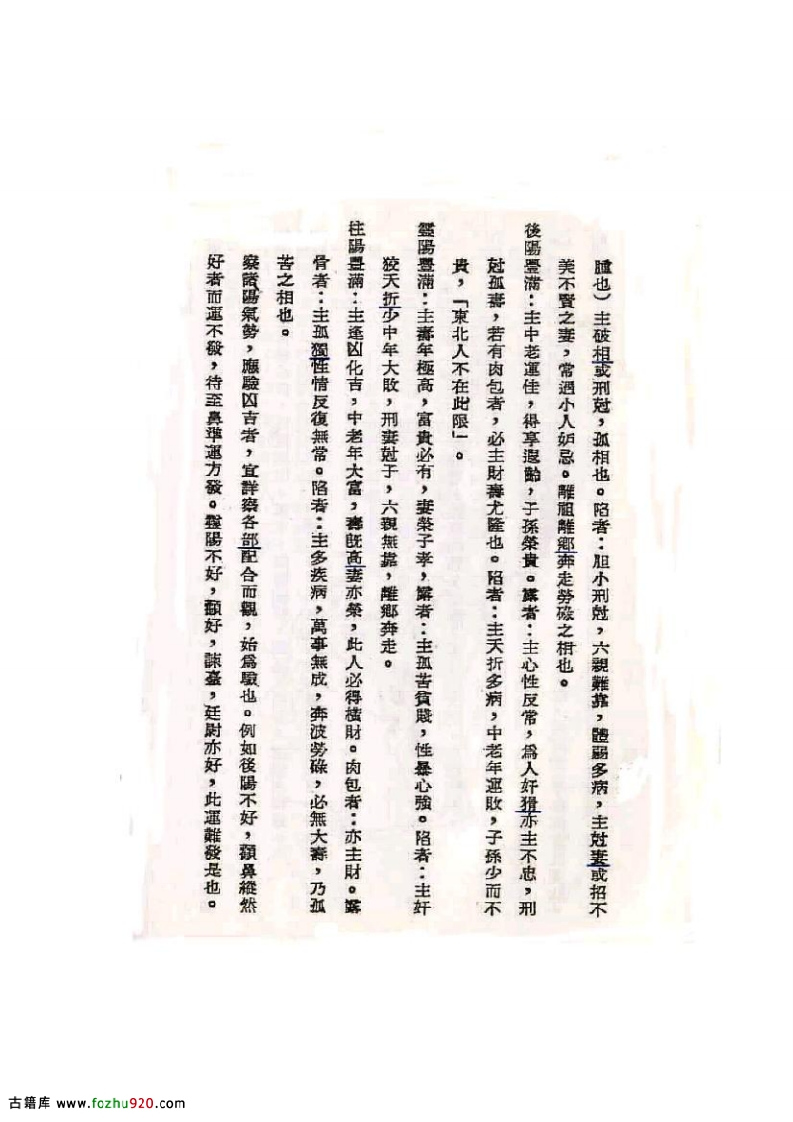 腫也）主破相或刑尅，孤相也。陷者：胆小刑尅，六親難靠，體弱多病，主尅妻或招不
美不賢之妻，常遇小人妒忌。離祖離鄉奔走勞碌之相也。
後陽豐滿：主中老運佳，得享遐齡，子孫榮貴。露者：主心性反常，爲人奸猾亦主不忠，刑
尅孤壽，若有肉包者，必主財壽尤隆也。陷者：主夭折多病，中老年運敗，子孫少而不
貴，「東北人不在此限」。
靈陽豐滿：主壽年極高，富貴必有，妻榮子孝，露者：主孤苦貧賤，性暴心強。陷者：主奸
狡夭折少中年大敗，刑妻尅子，六親無靠，離鄉奔走。
柱陽豐滿：主逢凶化吉，中老年大富，壽既高妻亦榮，此人必得橫財。肉包者：亦主財。露
骨者：主孤獨性情反復無常。陷者：主多疾病，萬事無成，奔波勞碌，必無大壽，乃孤
苦之相也。
察諸陽氣勢，應驗凶吉者，宜詳察各部配合而觀，始爲驗也。例如後陽不好，顴鼻縱然
好者而運不發，待至鼻準運方發。靈陽不好，顴好，諫臺，廷尉亦好，此運難發是也。
古籍库 www.fozhu920.com